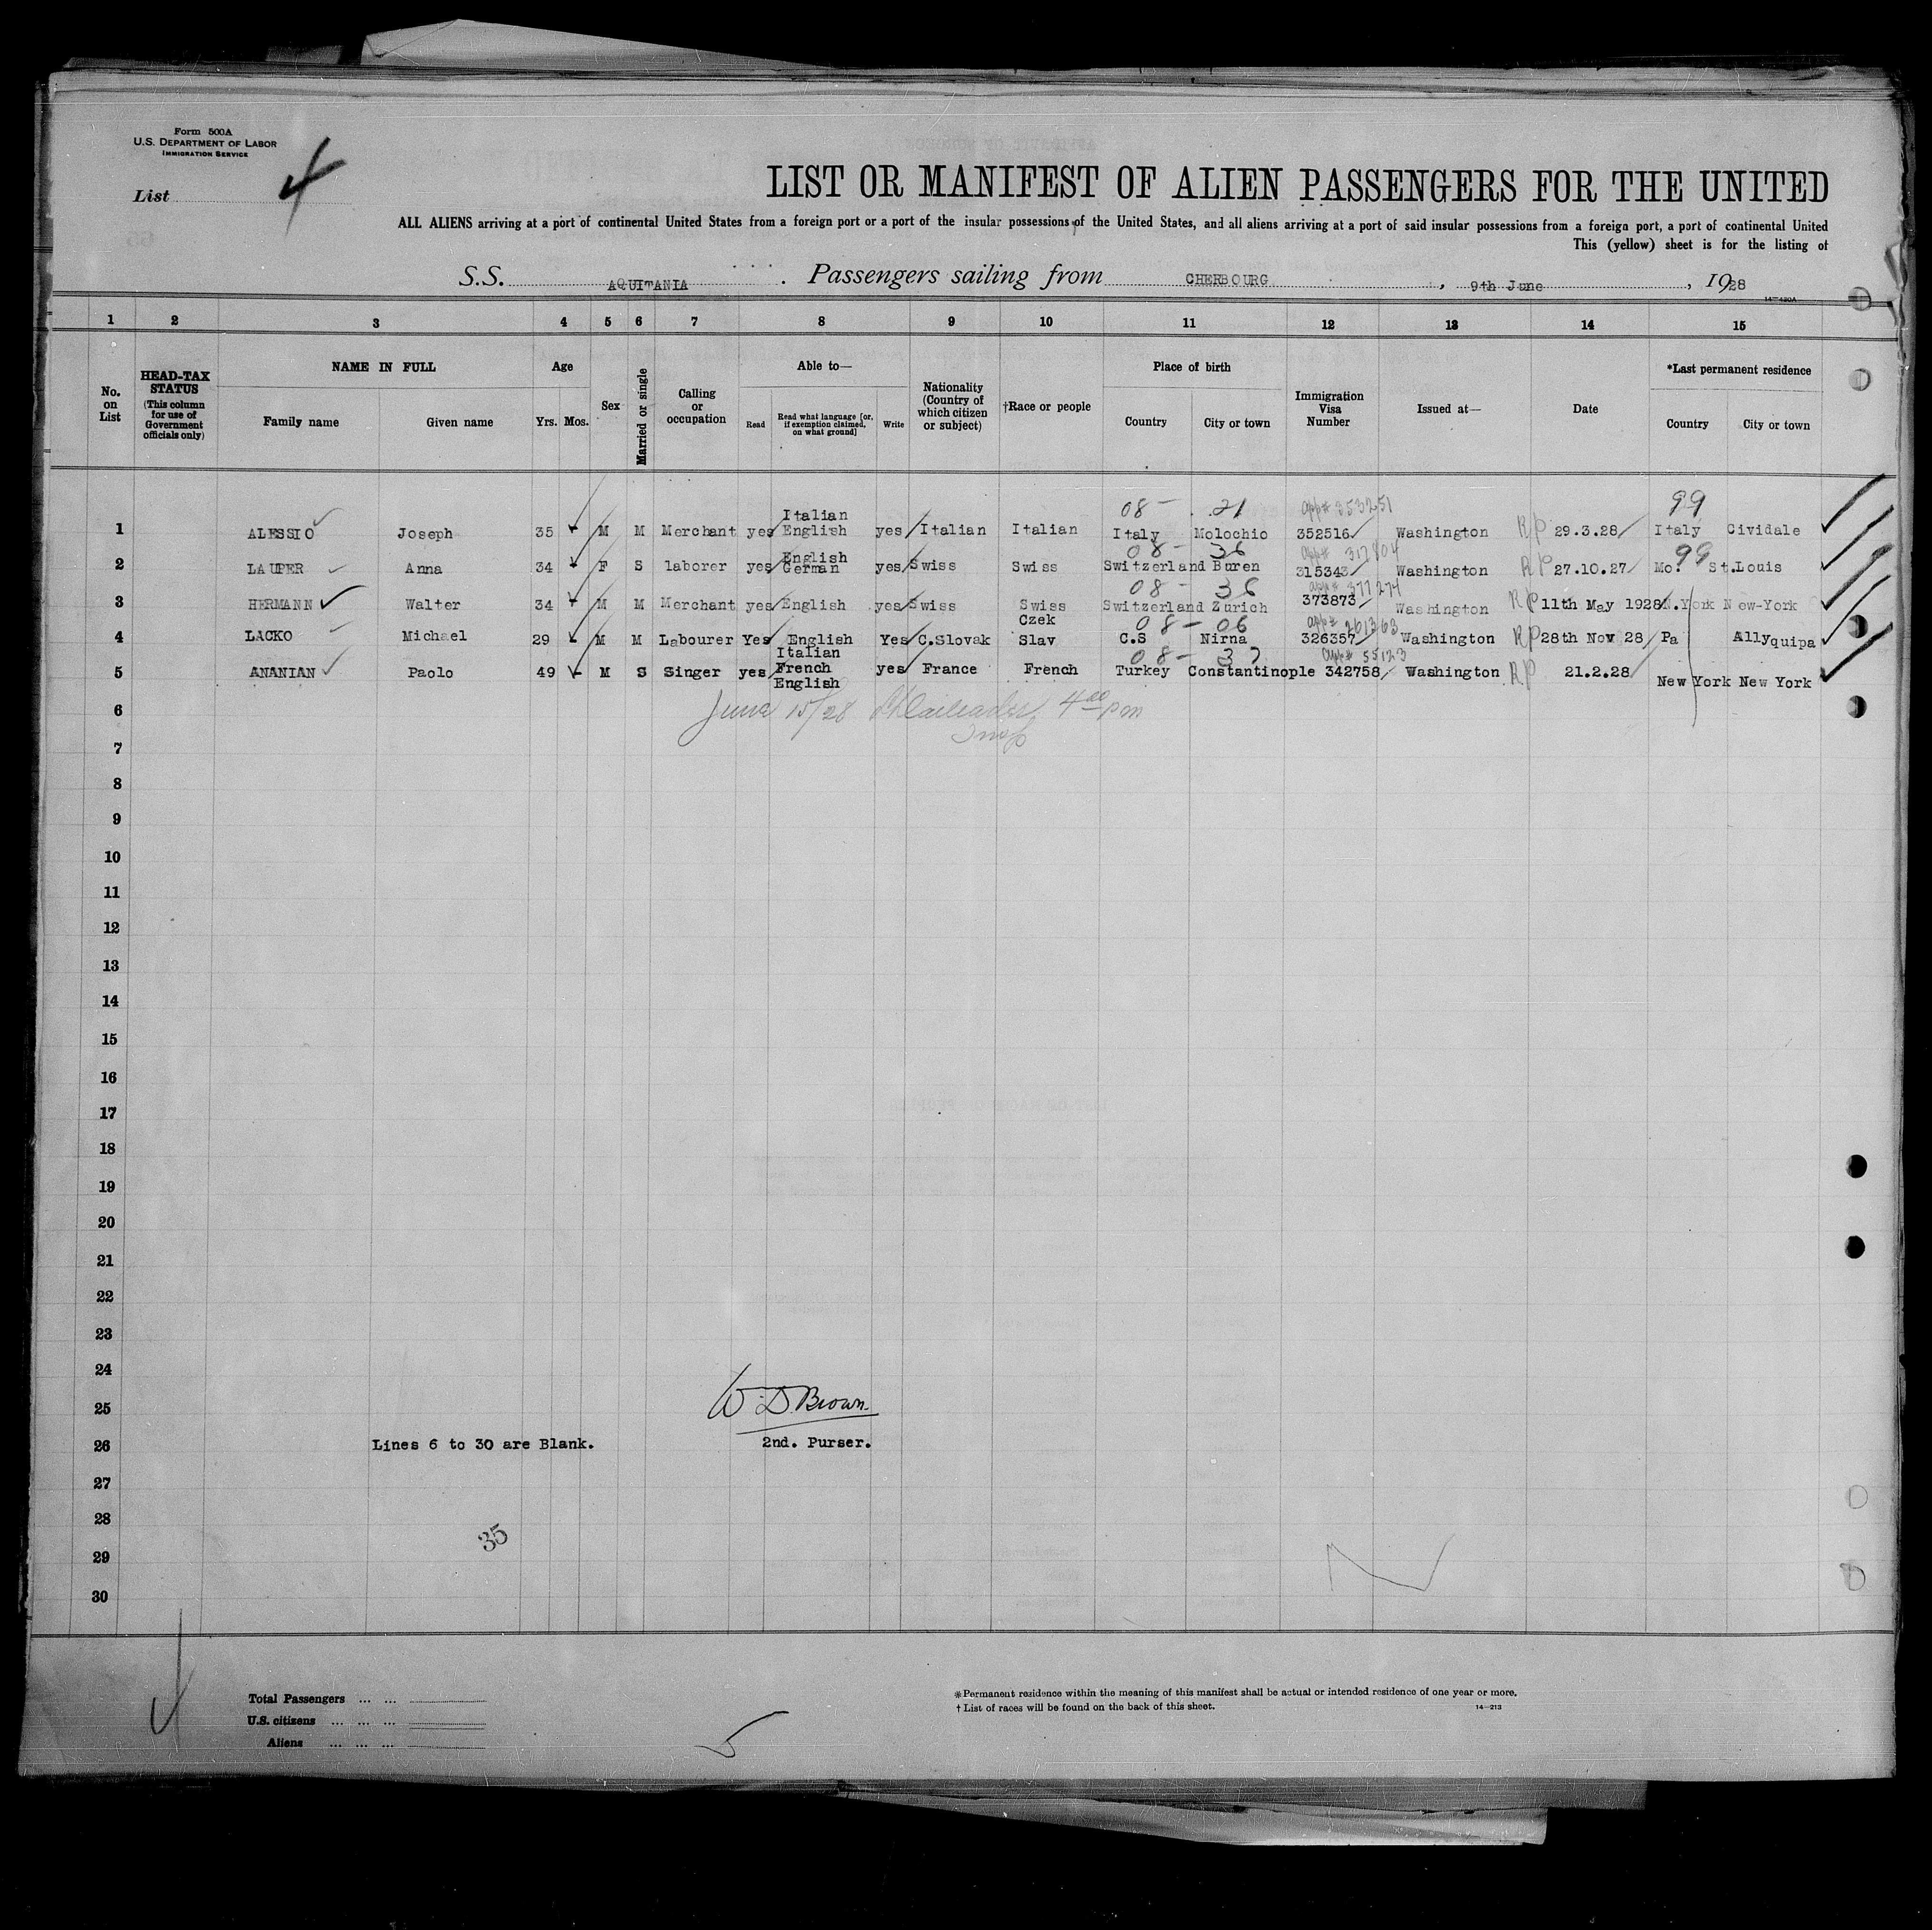 Form 500A
U.S. DEPARTMENT OF LABOR
IMMIGRATION SERVICE
List 4
LIST OR MANIFEST OF ALIEN PASSENGERS FOR THE UNITED
ALL ALIENS arriving at a port of continental United States from a foreign port or a port of the insular possessions of the United States, and all aliens arriving at a port of said insular possessions from a foreign port, a port of continental United
This (yellow) sheet is for the listing of
S.S. AQUITANIA Passengers sailing from CHERBOURG, 9th June, 1928
14-420A
1 2 3 4 5 6 7 8 9 10 11 12 13 14 15
No. on List
HEAD-TAX STATUS (This column for use of Government officials only)
NAME IN FULL
Family name Given name
Age
Yrs. Mos.
Sex
Married or single
Calling or occupation
Able to—
Read Read what language [or, if exemption claimed, on what ground] Write
Nationality (Country of which citizen or subject)
†Race or people
Place of birth
Country City or town
Immigration Visa Number
Issued at—
Date
*Last permanent residence
Country City or town
08 - 21 app# 353251 99
Italian
1 ALESSIO Joseph 35 M M Merchant yes English yes Italian Italian Italy Molochio 352516 Washington RP 29.3.28 Italy Cividale
08 - 36 app# 317804 99
English
2 LAUPER Anna 34 F S laborer yes German yes Swiss Swiss Switzerland Buren 315343 Washington RP 27.10.27 Mo. St.Louis
08 - 36 app# 377274
3 HERMANN Walter 34 M M Merchant yes English yes Swiss Swiss Switzerland Zurich 373873 Washington RP 11th May 1928 N.York New-York
Czek 08 - 06 app# 261363
4 LACKO Michael 29 M M Labourer Yes English Yes C.Slovak Slav C.S Nirna 326357 Washington RP 28th Nov 28 Pa Allyquipa
Italian 08 - 37 app# 55123
5 ANANIAN Paolo 49 M S Singer yes French yes France French Turkey Constantinople 342758 Washington RP 21.2.28 New York New York
English
6 June 15/28 4 00 pm
7
8
9
10
11
12
13
14
15
16
17
18
19
20
21
22
23
24
25 W. D. Brown.
26 Lines 6 to 30 are Blank. 2nd. Purser.
27
28
35
29
30
Total Passengers ... ...
U.S. citizens ... ... ...
Aliens ... ... ...
5
*Permanent residence within the meaning of this manifest shall be actual or intended residence of one year or more.
† List of races will be found on the back of this sheet. 14-213